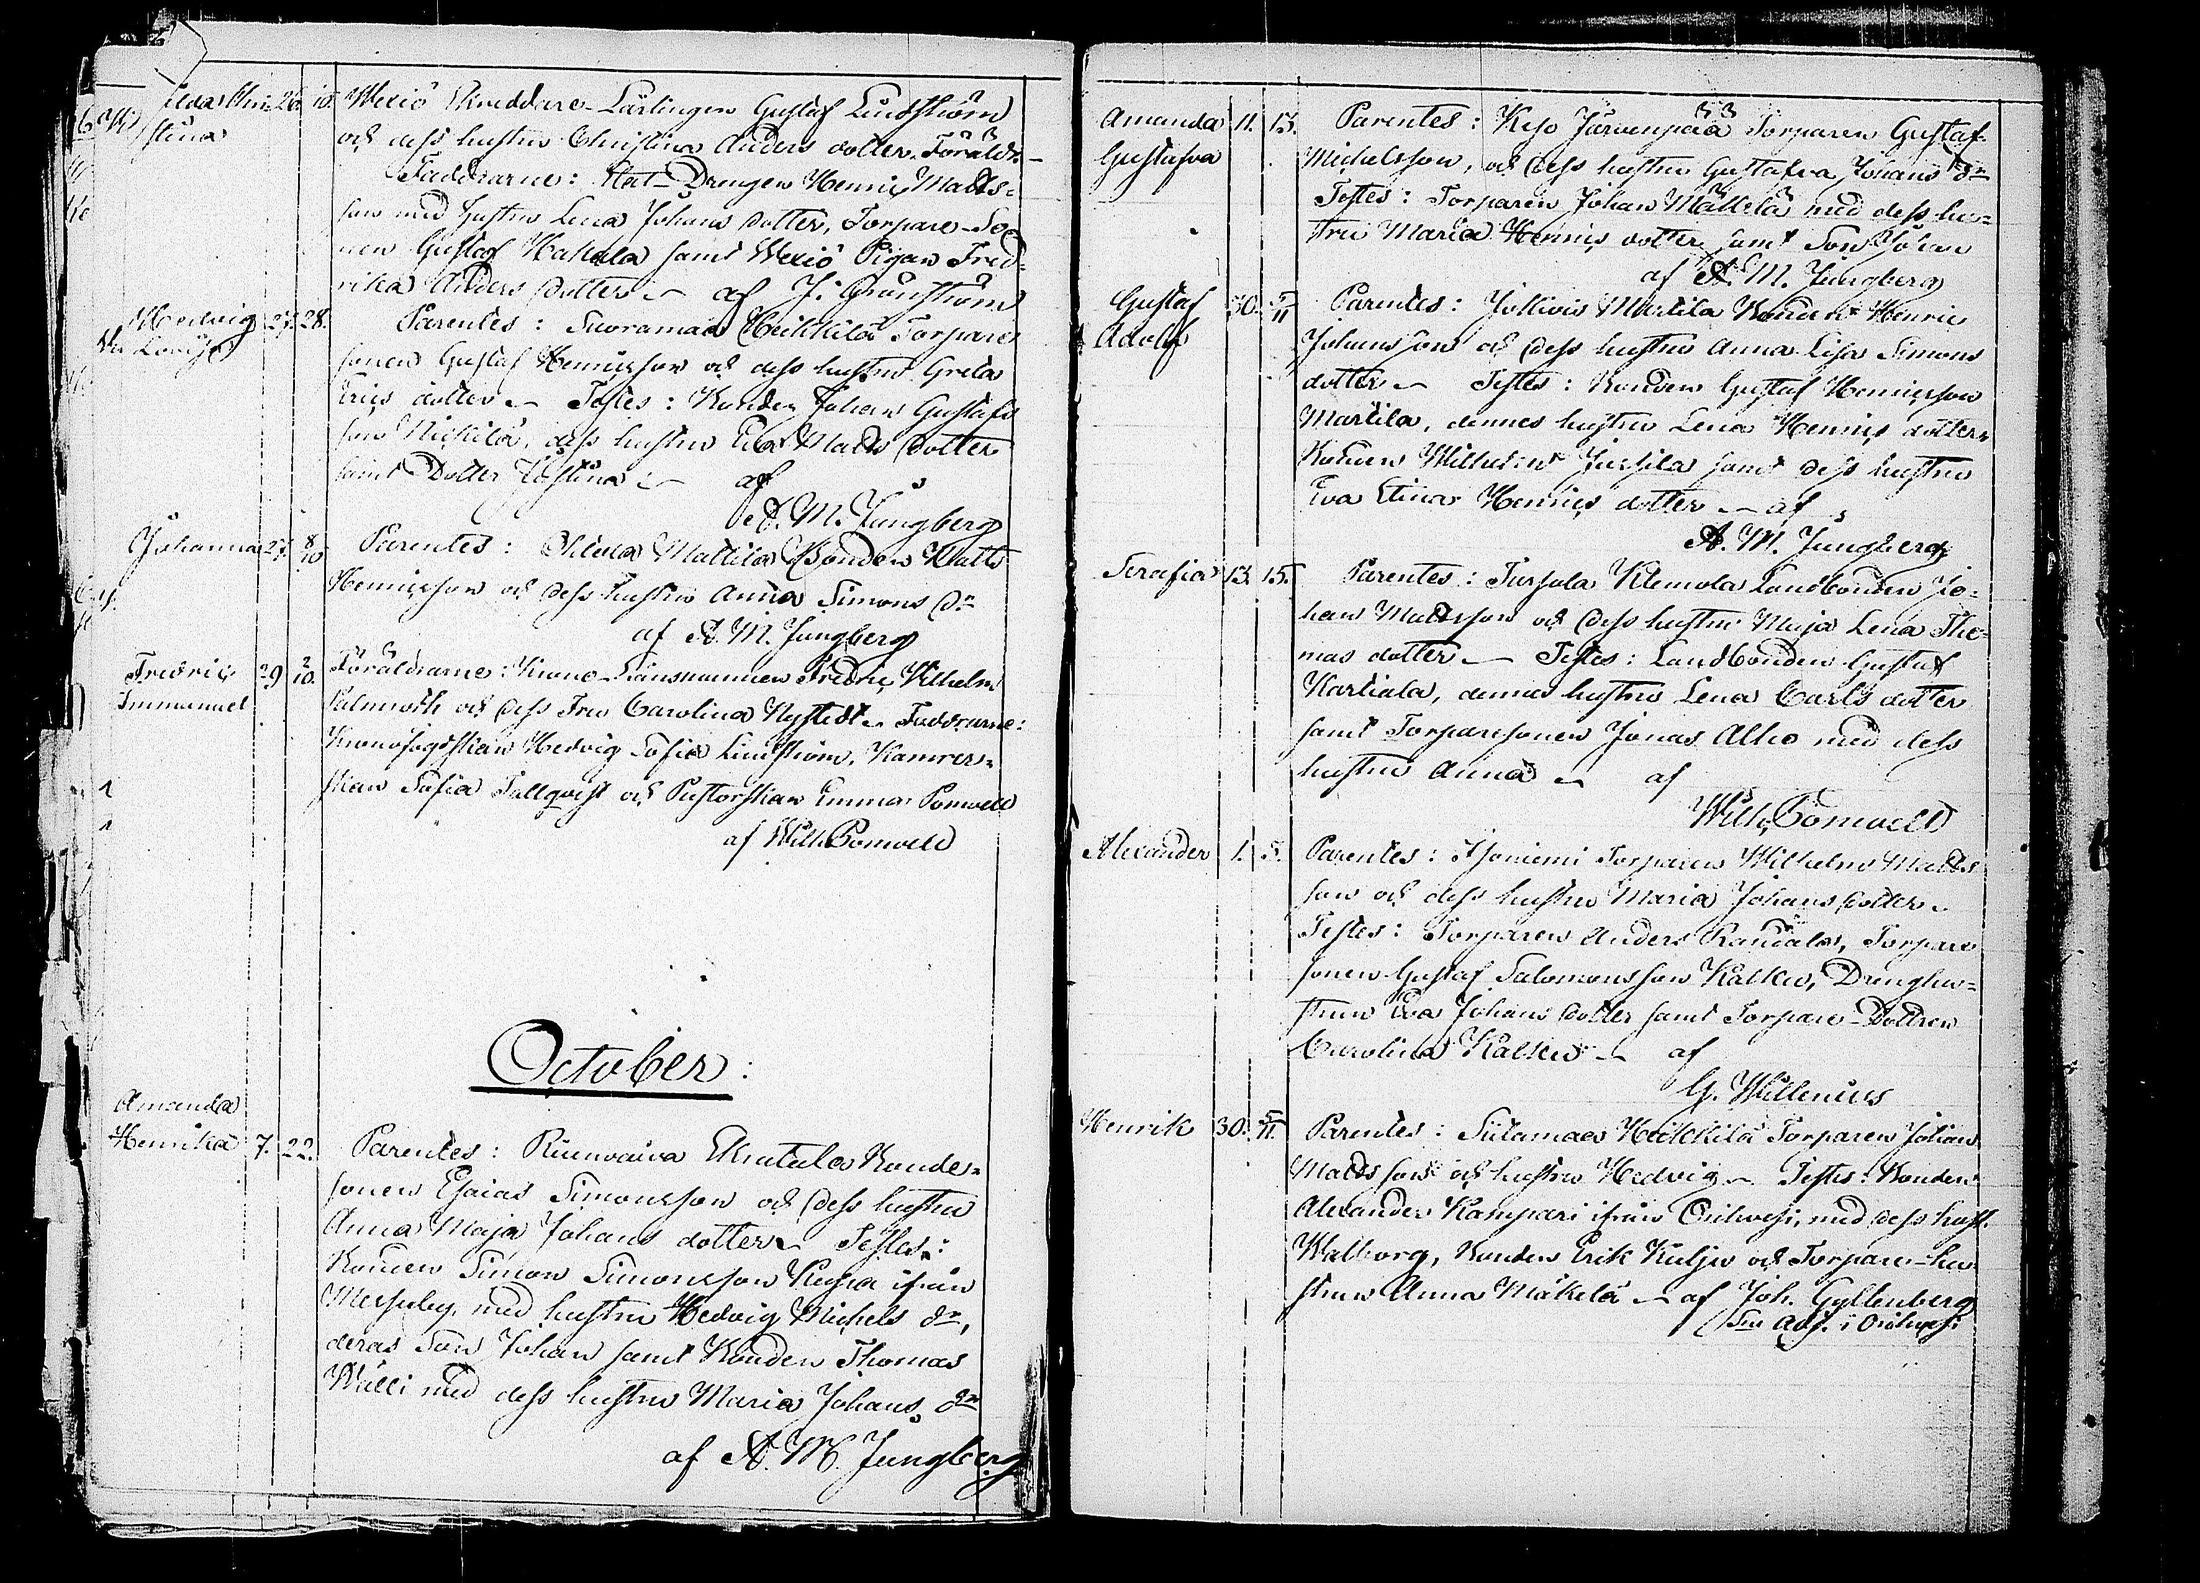 Chri 26. 10. Wexiö Skreddare-Lärlingen Gustaf Lindström
stina och dess hustru Christina Anders dotter. Föräldr.
Faddrarne: Stat-Drengen Henric Matts-
son med hustru Lena Johans dotter, Torpare-So-
nen Gustaf Hakala samt Wexiö Pigan Fred-
rika Anders dotter af J: Grönström
Hedvig 27. 28. Parentes: Suoramaa Heikkilä Torpare
Lovisa sonen Gustaf Henricsson och dess hustru Greta
Erics dotter Testes: Bonden Johan Gustafs
son Nickilä, dess hustru Eva Matts dotter
samt Dotter Justina af
A. M. Jungberg
Johanna 27. 8/10 Parentes: Mattila Bonden Matts
Henricsson och dess hustru Anna Simons dr
af A. M. Jungberg
Fredric 29 2/10. Föräldrarne: Krono-Länsmannen Fredric Vilhelm
Immanuel Palmroth och dess Fru Carolina Nystedt Faddrarne:
Kronofogdskan Hedvig Sofia Lindström, Kamrers-
skan Sofia Tallqvist och Pastorskan Emma Ponwell
af Wilh. Ponwell
October:
Amanda
Henrika 7. 22. Parentes: Bonde-
sonen Esaias Simonsson och dess hustru
Anna Maja Johans dotter Testes:
Bonden Simon Simonsson Kuja ifrån
Messuby, med hustru Hedvig Michels dr,
deras Son Johan samt Bonden Thomas
Wälli med dess hustru Maria Johans dr
af A. M. Jungberg
Amanda 11. 13. Parentes: Keso Järvenpää Torparen Gustaf
Gustafva Michelsson, och dess hustru Gustafva Johans dr
Testes: Torparen Johan Mäkelä med dess hu-
stru Maria Henrics dotter samt Son Johan
af A. M. Jungberg
Gustaf 30. 5/11 Parentes: Jokivis Martila Bonden Henric
Adolf Johansson och dess hustru Anna Lisa Simons
dotter Testes: Bonden Gustaf Henricsson
Martila, dennes hustru Lena Henrics dotter
Bonden Wilhelm Jussila samt dess hustru
Eva Stina Henrics dotter af
A. M. Jungberg
Serafia 13. 15. Parentes: Tursola Klemola Landbonden Jo-
han Mattsson och dess hustru Maja Lena Tho-
mas dotter Testes: Landbonden Gustaf
Kartiala, dennes hustru Lena Carls dotter
samt Torparesonen Jonas Alho med dess
hustru Anna af
Wilh. Ponwell
Alexander 1. 5. Parentes: Torparen Wilhelm Matts
son och dess hustru Maria Johans dotter
Testes: Torparen Anders Randala, Torpare
sonen Gustaf Salomonsson Kalku, Drenghu-
strun Eva Johans dotter samt Torpare-Dottren
Carolina Kalku af
G. Willenius
Henrik 30. 5/11. Parentes: Heikkilä Torparen Johan
Matts son och hustru Hedvig Testes: Bonden
Alexander Kampari ifrån Orihvesi, med dess hust.
Walborg, Bonden Erik Kulju och Torpare-hu
strun Anna Mäkelä af Joh. Gyllenberg
Adj. i Orihvesi